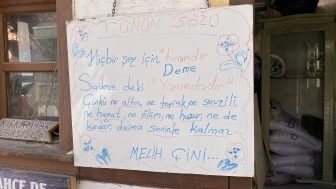 GÜNÜN SÖZÜ
Hiçbir şey için "benimdir"
Deme
Sadece deki Yanımdadır"
Çünkü ne altın, ne toprak, ne sevgili
ne hayat, ne ölüm, ne huzur, ne de
keder, daima seninle kalmaz...
MELİH ÇİNİ...
AHÇE DE